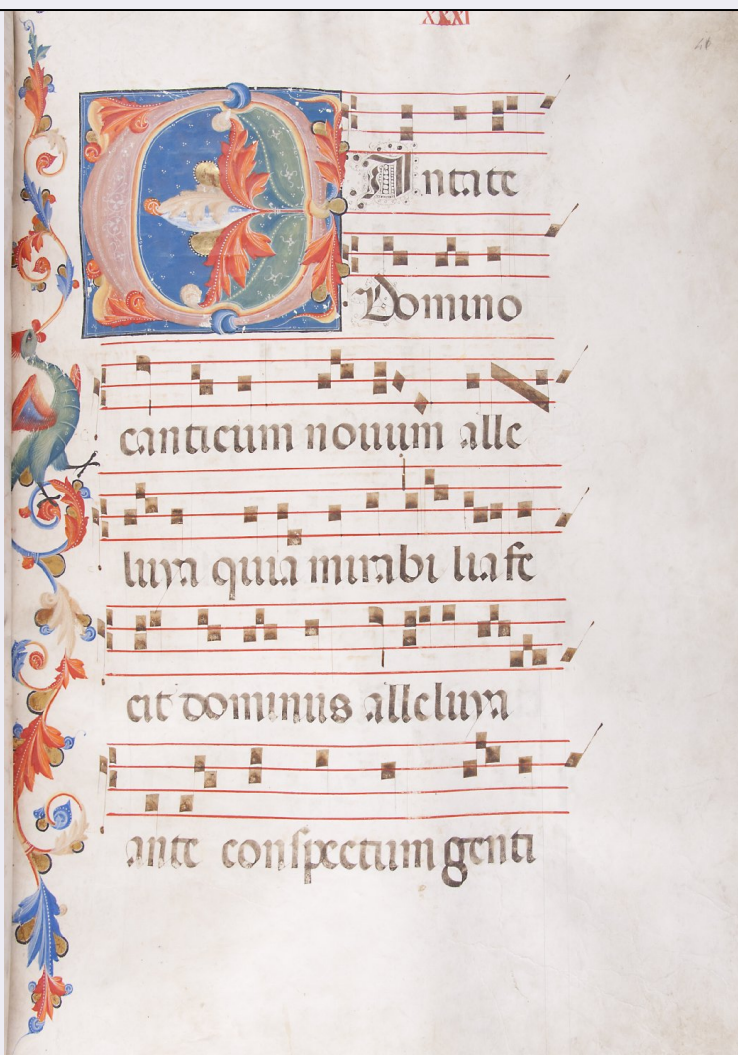 XXXI
CAntate
Domino
canticum nouum alle
luya quia mirabi lia fe
cit dominus alleluya
ante conspectum genti